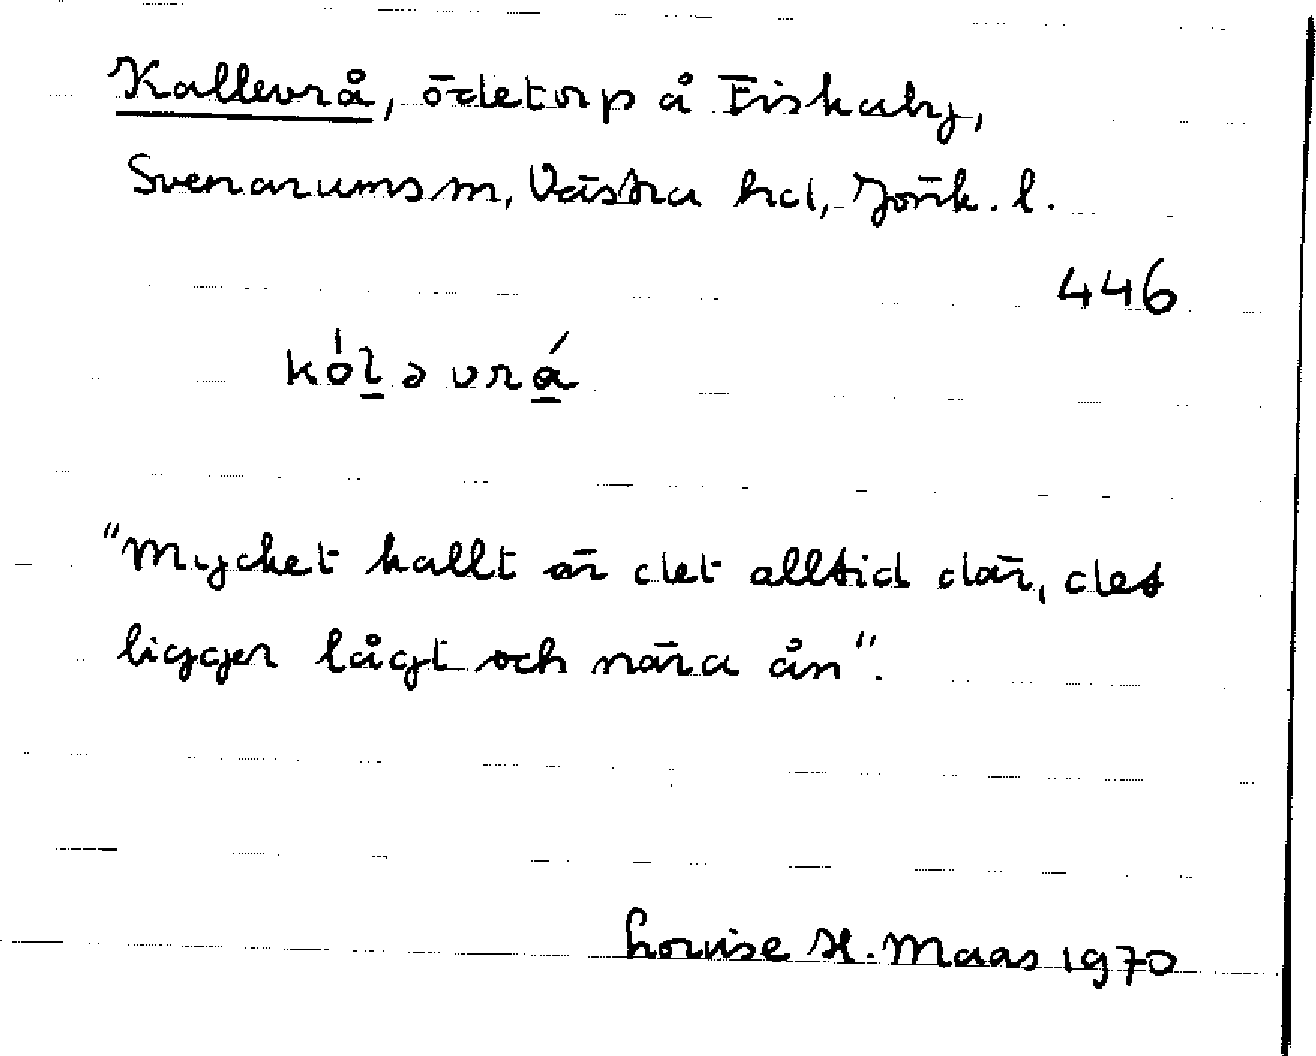 Kallevrå, ödetorp å Fiskaby,
Svenarums sn, Västra hd, Jönk. l.
446
kól̲əvrá̲
"Mycket kallt är det alltid där, det
ligger lågt och nära ån".
Louise H. Maas 1970